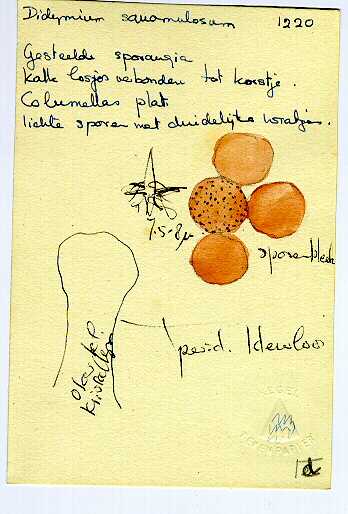 Didymium squamulosum 1220
Gesteelde sporangia
Kalk losjes verbonden tot korstje.
Columellas plat
lichte sporen met duidelijke wratjes.
7.5-8µ
sporen bleek
perid. kleurloos